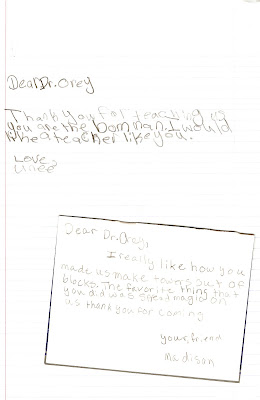 Dear Dr. Orey
Thank you for teaching us
you are the bom man. I would
like a teacher like you.
Love,
Dear Dr. Orey,
I really like how you
made us make towers out of
blocks. The favorite thing that
you did was speed magic on
us. thank you for coming
your friend
madison